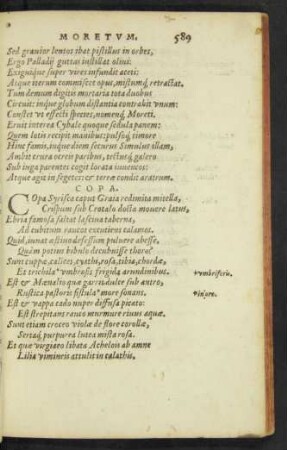 MORETVM. 589
Sed grauior lentus ibat pistillus in orbes,
Ergo Palladij guttas instillat oliui:
Exiguique super vires infundit aceti:
Atque iterum commiscet opus, mistumq; retractat.
Tum demum digitis mortaria tota duobus
Circuit: inque globum distantia contrahit vnum:
Constet vt effecti species, nomenq; Moreti.
Eruit interea Cybale quoque sedula panem:
Quem lotis recipit manibus: pulsoq; timore
Hinc famis, inque diem securus Simulus illam,
Ambit crura ocreis paribus, tectusq; galero
Sub iuga parentes cogit lorata iuuencos:
Atque agit in segetes: & terræ condit aratrum.
COPA.
COpa Syrisca caput Graia redimita mitella,
Crispum sub Crotalo docta mouere latus,
Ebria fumosa saltat lasciua taberna,
Ad cubitum raucos excutiens calamos.
Quid iuuat æstiuo defessum puluere abesse,
Quàm potius bibulo decubuisse thoro?
Sunt cuppæ, calices, cyathi, rosa, tibia, chordæ,
Et trichila * vmbrosis frigida arundinibus. *vmbriferis.
Est & Mænalio quæ garrit dulce sub antro,
Rustica pastoris fistula * more sonans. *in ore.
Est & vappa cado nuper diffusa picato:
Est strepitans rauco murmure riuus aquæ.
Sunt etiam croceo violæ de flore corollæ,
Sertaq; purpurea lutea mista rosa.
Et quæ virgineo libata Achelois ab amne
Lilia vimineis attulit in calathis.